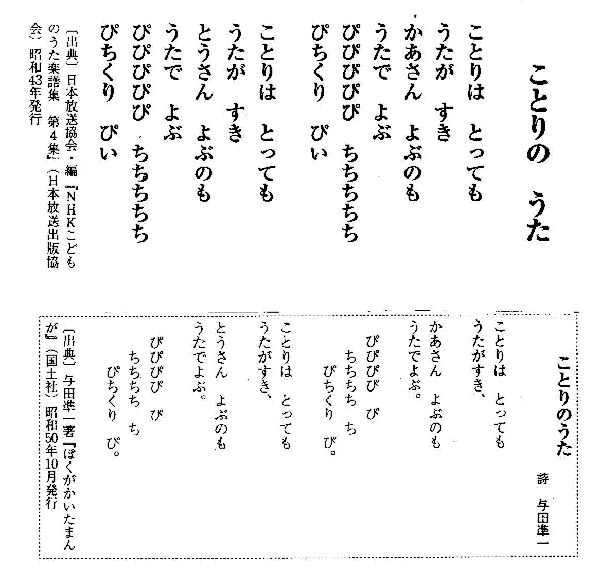 ことりの うた
ことりは とっても
うたが すき
かあさん よぶのも
うたで よぶ
ぴぴぴぴぴ ちちちちち
ぴちくり ぴい
ことりは とっても
うたが すき
とうさん よぶのも
うたで よぶ
ぴぴぴぴぴ ちちちちち
ぴちくり ぴい
〔出典〕日本放送協会・編『NHKこども
のうた楽譜集 第4集』(日本放送出版協
会)昭和43年発行
ことりのうた
詩 与田凖一
ことりは とっても
うたがすき、
かあさん よぶのも
うたでよぶ。
ぴぴぴぴ ぴ
ちちちち ち
ぴちくり ぴ。
ことりは とっても
うたがすき、
とうさん よぶのも
うたでよぶ。
ぴぴぴぴ ぴ
ちちちち ち
ぴちくり ぴ。
〔出典〕与田凖一著『ぼくがかいたまん
が』(国土社)昭和50年10月発行